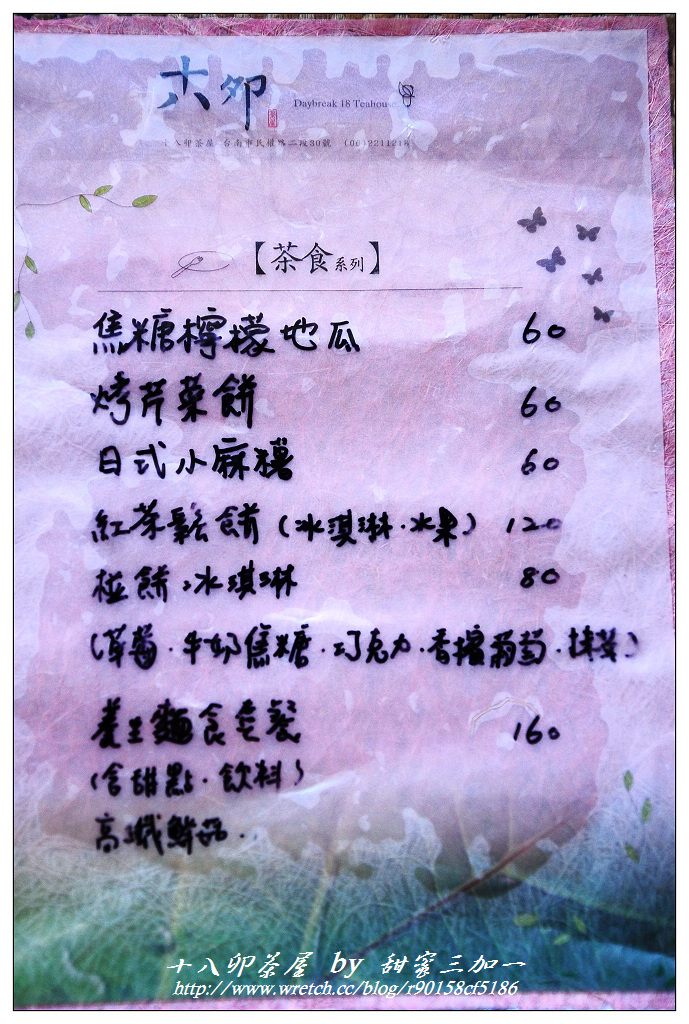 十八卯
Daybreak 18 Teahouse
十八卯茶屋 台南市民權路二段30號 (06)2211218
【茶食系列】
焦糖檸檬地瓜 60
烤芹菜餅 60
日式小麻糬 60
紅茶鬆餅(冰淇淋·水果) 120
椪餅冰淇淋 80
(草莓·牛奶焦糖·巧克力·香檳葡萄·抹茶)
養生麵食套餐 160
(含甜點·飲料)
高纖鮮菇
十八卯茶屋 by 甜蜜三加一
http://www.wretch.cc/blog/r90158cf5186